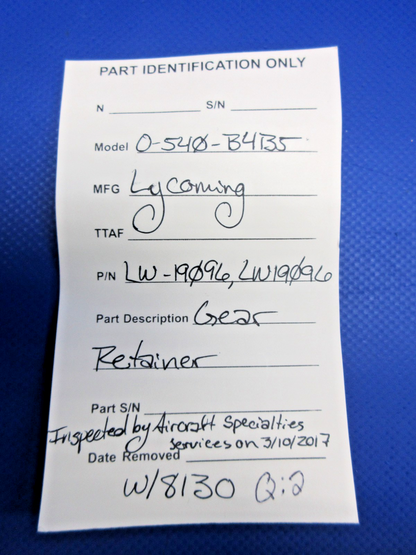 PART IDENTIFICATION ONLY
N S/N
Model O-540-B4B5
MFG Lycoming
TTAF
P/N LW-19096, LW19096
Part Description Gear
Retainer
Part S/N
Inspected by Aircraft Specialties
services on 3/10/2017
Date Removed
W/8130 Q:2